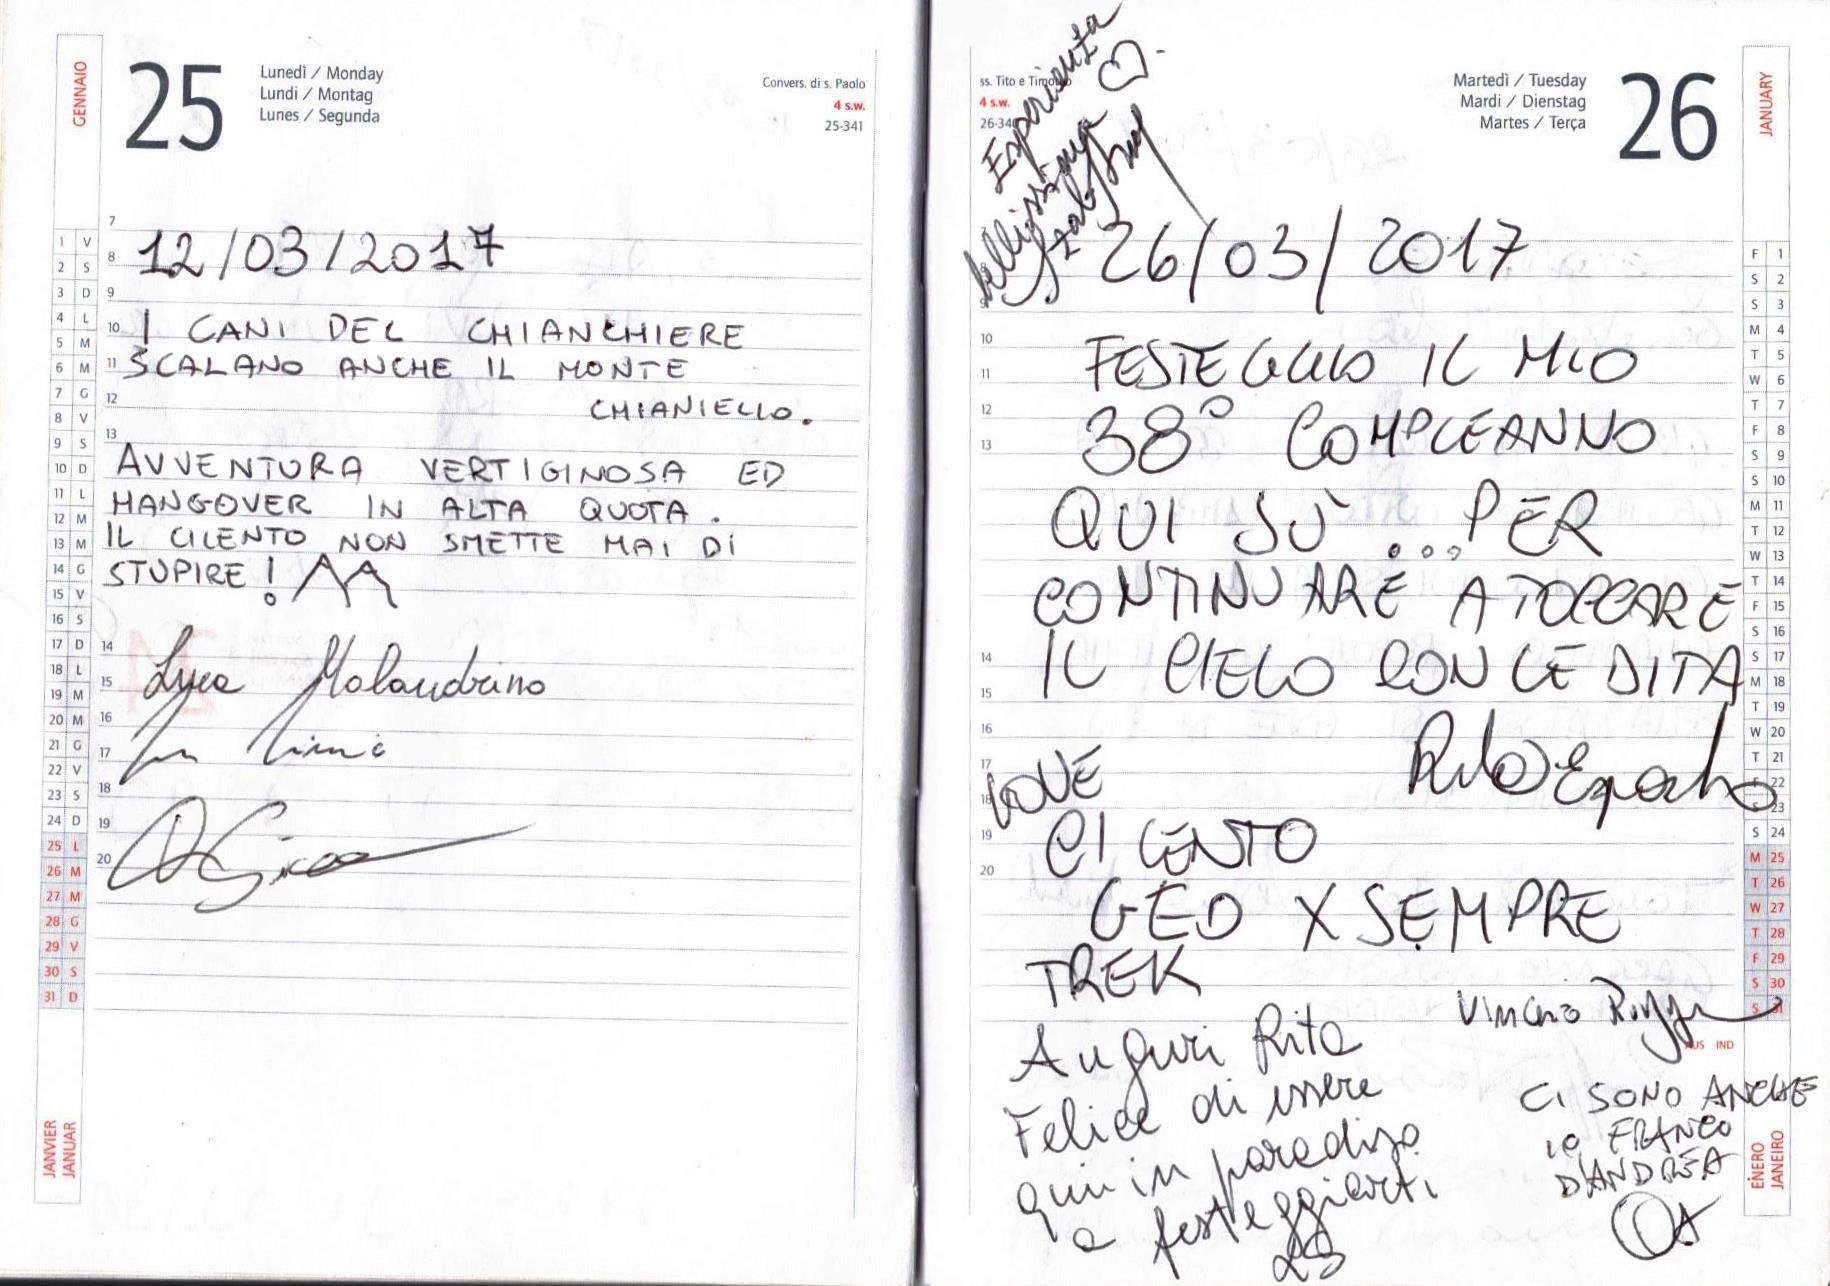 GENNAIO
25
Lunedì / Monday
Lundi / Montag
Lunes / Segunda
Convers. di s. Paolo
4 s.w.
25-341
12/03/2017
I CANI DEL CHIANCHIERE
SCALANO ANCHE IL MONTE
CHIANIELLO.
AVVENTURA VERTIGINOSA ED
HANGOVER IN ALTA QUOTA.
IL CILENTO NON SMETTE MAI DI
STUPIRE!
Luca Malandrino
7
8
9
10
11
12
13
14
15
16
17
18
19
20
1 V
2 S
3 D
4 L
5 M
6 M
7 G
8 V
9 S
10 D
11 L
12 M
13 M
14 G
15 V
16 S
17 D
18 L
19 M
20 M
21 G
22 V
23 S
24 D
25 L
26 M
27 M
28 G
29 V
30 S
31 D
JANVIER
JANUAR
ss. Tito e Timoteo
4 s.w.
26-340
Martedì / Tuesday
Mardi / Dienstag
Martes / Terça
26
JANUARY
Esperienza
bellissima
26/03/2017
FESTEGGIO IL MIO
38° COMPLEANNO
QUI SÙ ... PER
CONTINUARE A TOCCARE
IL CIELO CON LE DITA
Rita Esposito
LOVE
CILENTO
GEO X SEMPRE
TREK
Auguri Rita
Felice di essere
qui in paradiso
a festeggiarti
CI SONO ANCHE
IO FRANCO
D'ANDREA
8
9
10
11
12
13
14
15
16
17
18
19
20
F 1
S 2
S 3
M 4
T 5
W 6
T 7
F 8
S 9
S 10
M 11
T 12
W 13
T 14
F 15
S 16
S 17
M 18
T 19
W 20
T 21
F 22
S 23
S 24
M 25
T 26
W 27
T 28
F 29
S 30
S 31
AUS IND
ENERO
JANEIRO